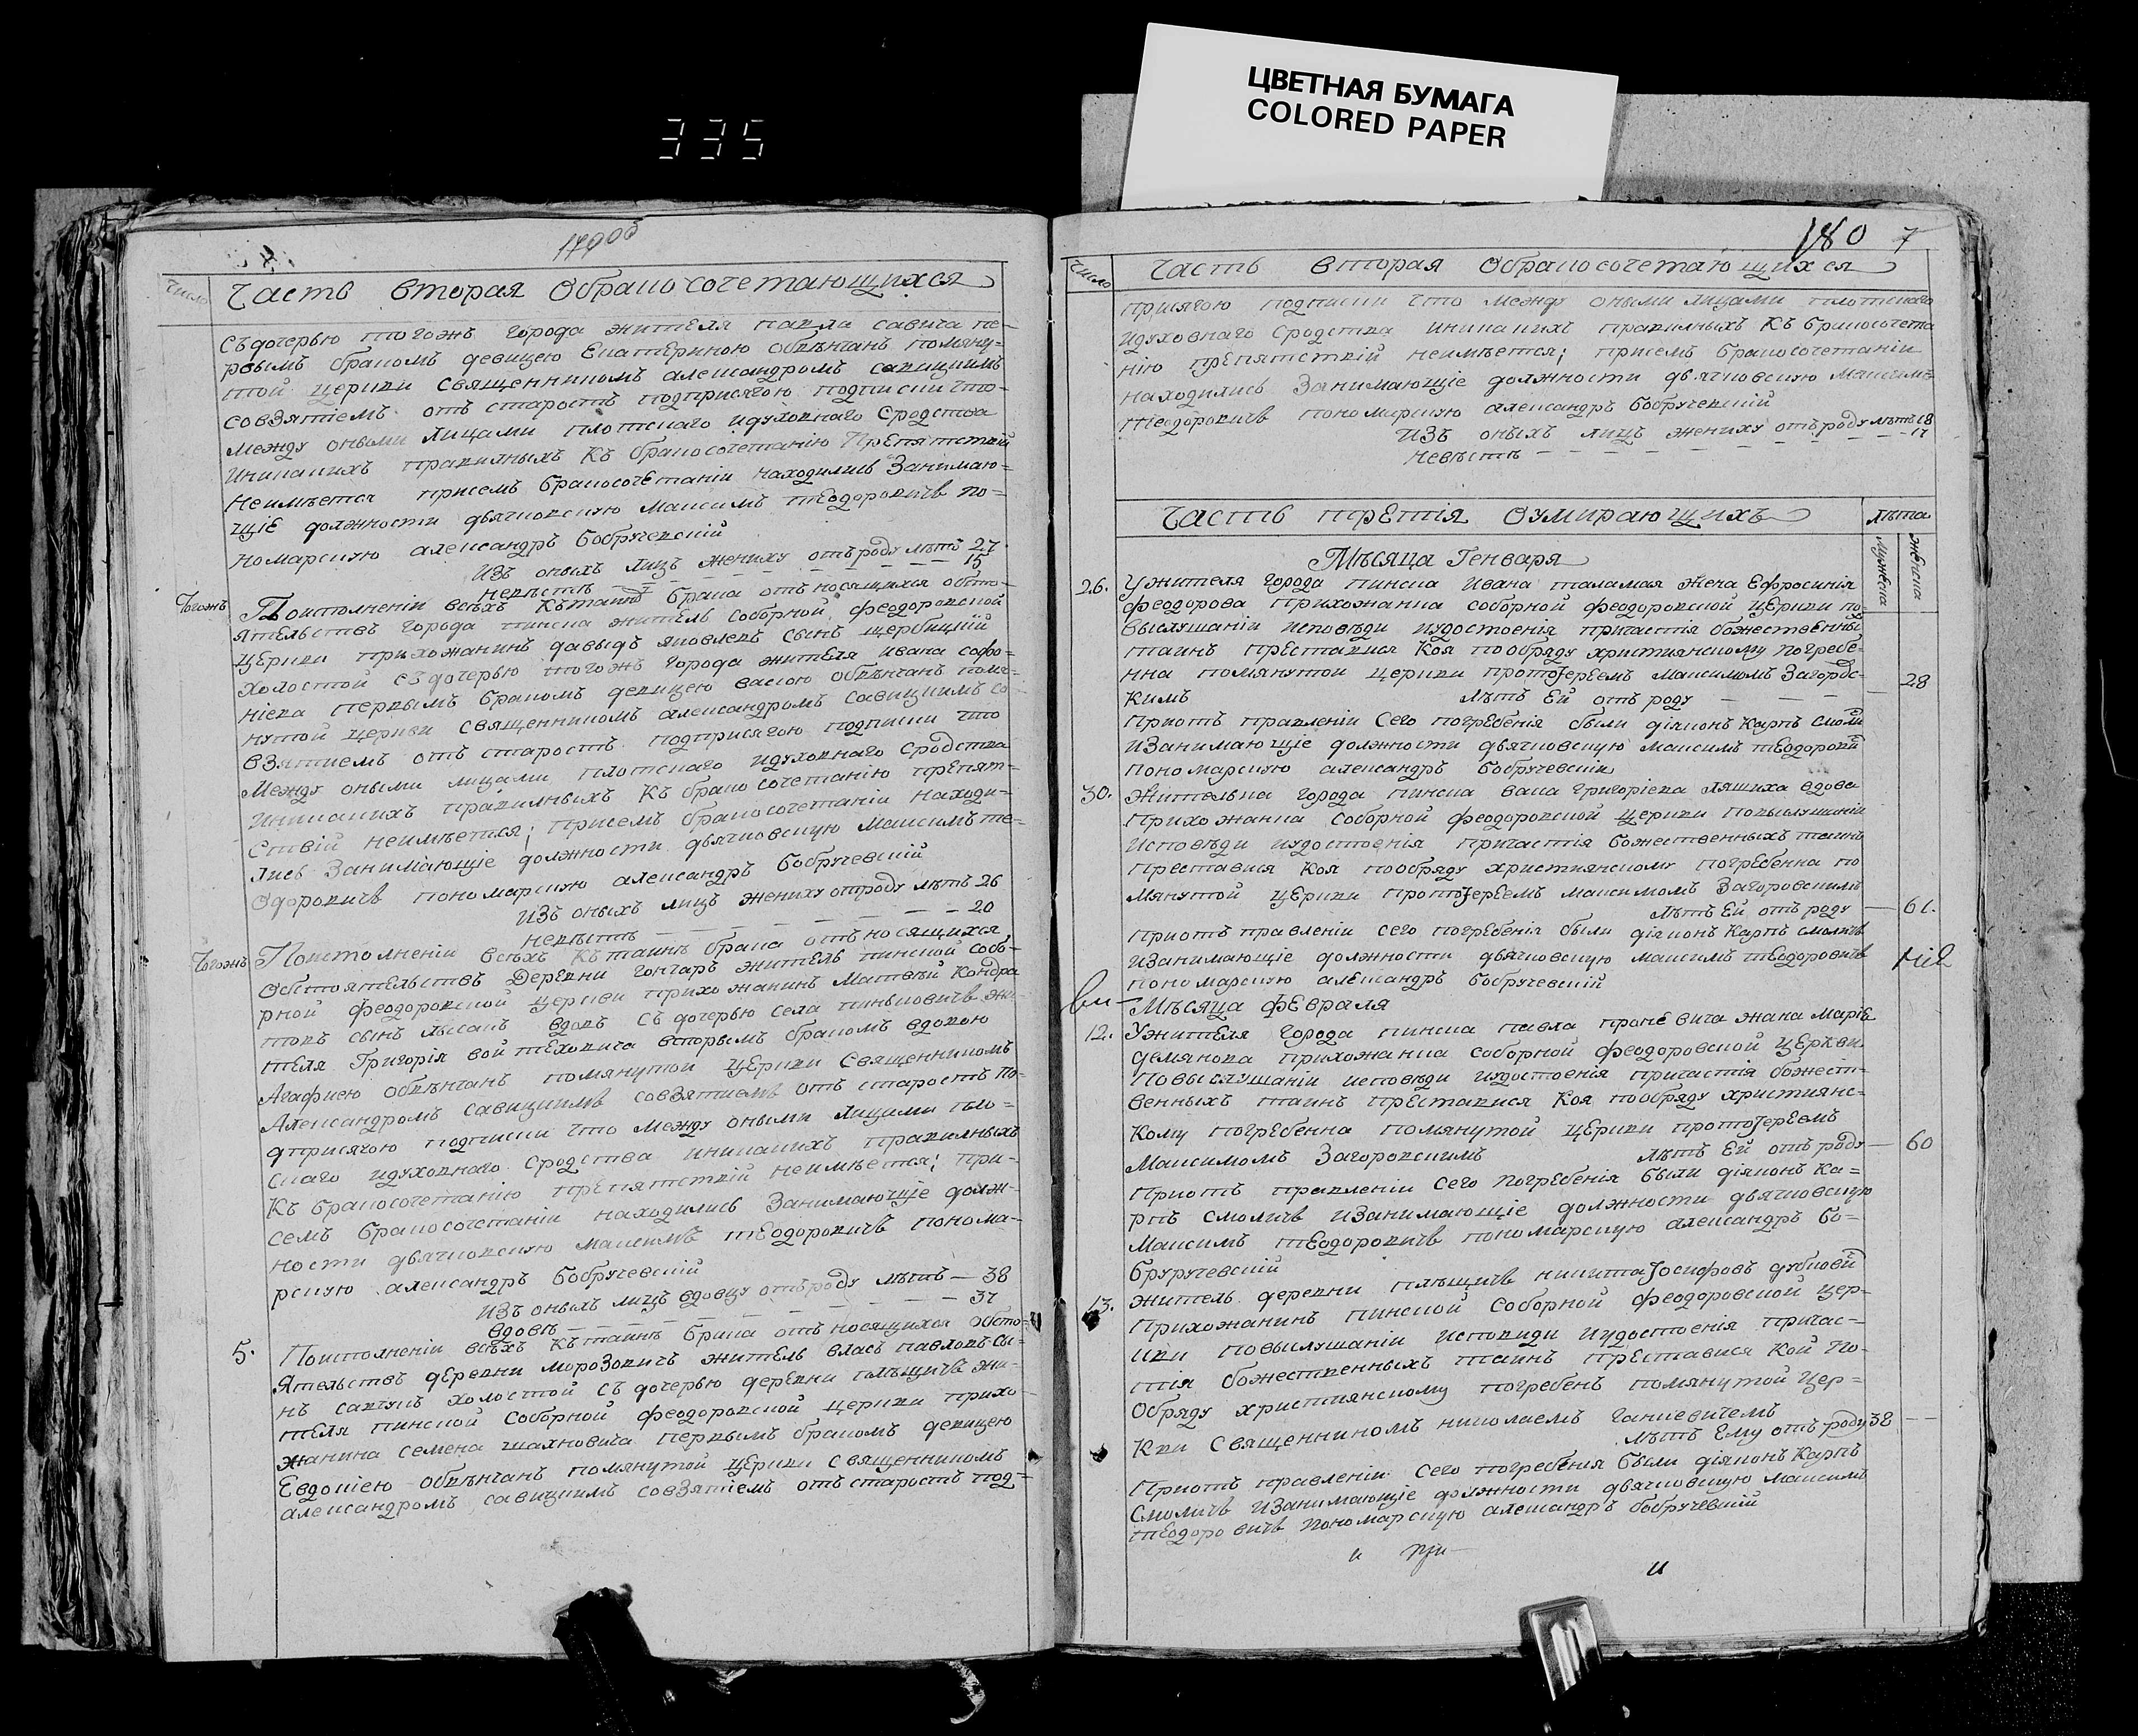 335
ЦВЕТНАЯ БУМАГА
COLORED PAPER
179об
Число
Часть вторая Обракосочетающихся
съдочерью тогожъ города жителя павла савича пе-
рвымъ бракомъ девицею Екатериною обвѣнчанъ помяну-
той церкви священникомъ александромъ савицкимъ
совзятіемъ отъ старостъ подприсягою подписки что
между оными лицами плотскаго идуховнаго Сродства
иникакихъ правилныхъ Къ бракосочетанію Препятствій
Неимѣется присемъ бракосочетаніи находились Занимаю-
щіе должности дьячковскую максимъ теодоровичь по-
номарскую александръ бобручевскій
Изъ оныхъ лицъ жениху отъроду лѣтъ 27
невѣстѣ — 15
Тогожъ
Поисполненіи всѣхъ Къ таинѣ брака отъносящихся обсто-
ятельствъ города пинска житель Соборной феодоровской
Церкви прихожанинъ давыдъ яковлевъ сынъ щербицкій
холостой съдочерью тогожъ города жителя ивана софо-
ніева первымъ бракомъ девицею васою обвѣнчанъ помя-
нутой церкви священникомъ александромъ савицкимъ со
взятиемъ отъ старостъ подприсягою подписки что
Между оными лицами плотскаго идуховнаго сродства
Иникакихъ правилныхъ Къ бракосочетанію препят-
ствій неимѣется; присемъ бракосочетаніи находи-
лись Занимающіе должности дьячковскую максимъ те-
одоровичь пономарскую александръ бобручевскій
Изъ оныхъ лицъ жениху отроду лѣтъ 26
невѣстѣ — 20
Тогожъ
Поисполненіи всѣхъ Къ таинѣ брака отъносящихся
Обстоятельствъ Деревни гончаръ житель пинской собо-
рной феодоровской церкви прихожанинъ Матвѣй Кондра
товъ сынъ лысакъ вдовъ Съ дочерью села пиньковичь жи-
теля Григорія войтеховича вторымъ бракомъ вдовою
Агафиею обвѣнчанъ помянутой Церкви Священникомъ
Александромъ савицкимъ совзятиемъ отъ старостъ по-
дприсягою подписки что между оными лицами пло-
скаго идуховнаго сродства иникакихъ правилныхъ
Къ бракосочетанію препятствій неимѣется; при-
семъ бракосочетаніи находились Занимающіе долж-
ности дьячковскую максимъ теодоровичь понома-
рскую александръ бобручевскій
Изъ оныхъ лицъ вдовцу отъроду лѣтъ — 38
вдовѣ — 37
5.
Поисполненіи всѣхъ Къ таинѣ брака отъносящихся обсто-
ятельствъ деревни морозовичь житель власъ павловъ сы-
нъ холостой съ дочерью деревни плѣщичь жи-
теля пинской соборной феодоровской церкви прихо-
жанина семена шахновича первымъ бракомъ девицею
Евдокіею обвѣнчанъ помянутой церкви священникомъ
александромъ савицкимъ совзятіемъ отъ старостъ под-
180 7
Число
Часть вторая Обракосочетающихся
присягою подписки что между оными лицами плотскаго
идуховнаго сродства иникакихъ правилныхъ Къ бракосочета
нію препятствій неимѣется; присемъ бракосочетаніи
находились Занимающіе должности дьячковскую Максимъ
теодоровичь пономарскую александръ бобручевскій
Изъ оныхъ лицъ жениху отъроду лѣтъ 18
невѣстѣ — 17
Часть третія Оумирающихъ
лѣта
мужеска
женска
Мѣсяца Генваря
26. Ужителя города пинска ивана таламая жена Ефросинія
феодорова прихожанка соборной феодоровской церкви по
выслушаніи исповѣди иудостоенія причастія божественны
таинъ преставися Коя пообряду християнскому погребе-
нна помянутой церкви протоіереемъ максимомъ Загоровс-
кимъ лѣтъ Ей отъ роду — 28
Приотъ правленіи Сего погребенія были діяконъ Карпъ смоли
изанимающіе должности дьячковскую максимъ теодорови
пономарскую александръ бобручевскій
30. Жителька города пинска васа григоріева ляшиха вдова
Прихожанка соборной феодоровской церкви повыслушаніи
исповѣди иудостоенія причастія божественныхъ таинъ
преставися Коя пообряду християнскому погребенна по
мянутой церкви протоіереемъ максимомъ Загоровскимъ
лѣтъ Ей отъ роду — 61.
приотъ правленіи сего погребенія были діяконъ Карпъ смоличь
изанимающіе должности дьячковскую максимъ теодоровичь
пономарскую александръ бобручевскій
Мѣсяца февраля
12. Ужителя города пинска павла жана Марія
демянова прихожанка соборной феодоровской церкви
Повыслушаніи исповѣди иудостоенія причастія божест-
венныхъ таинъ преставися Коя пообряду християнс-
кому погребенна помянутой церкви протоіереемъ
Максимомъ Загоровскимъ лѣтъ Ей отъ роду — 60
Приотъ правленіи Сего погребенія были діяконъ Ка-
рпъ смоличь изанимающіе должности дьячковскую
Максимъ теодоровичь пономарскую александръ бо-
бруручевскій
13. Житель деревни плѣщичь никита Іосифовъ
Прихожанинъ пинской Соборной феодоровской цер-
кви повыслушаніи исповиди иудостоенія причас-
тія божественныхъ таинъ преставися Кой По-
обряду християнскому погребенъ помянутой Цер-
Кви Священникомъ николаемъ
лѣтъ Ему отъ роду 38
Приотъ правленіи Сего погребенія были діяконъ Карпъ
Смоличь изанимающіе должности дьячковскую максимъ
теодоровичь пономарскую александръ бобручевскій